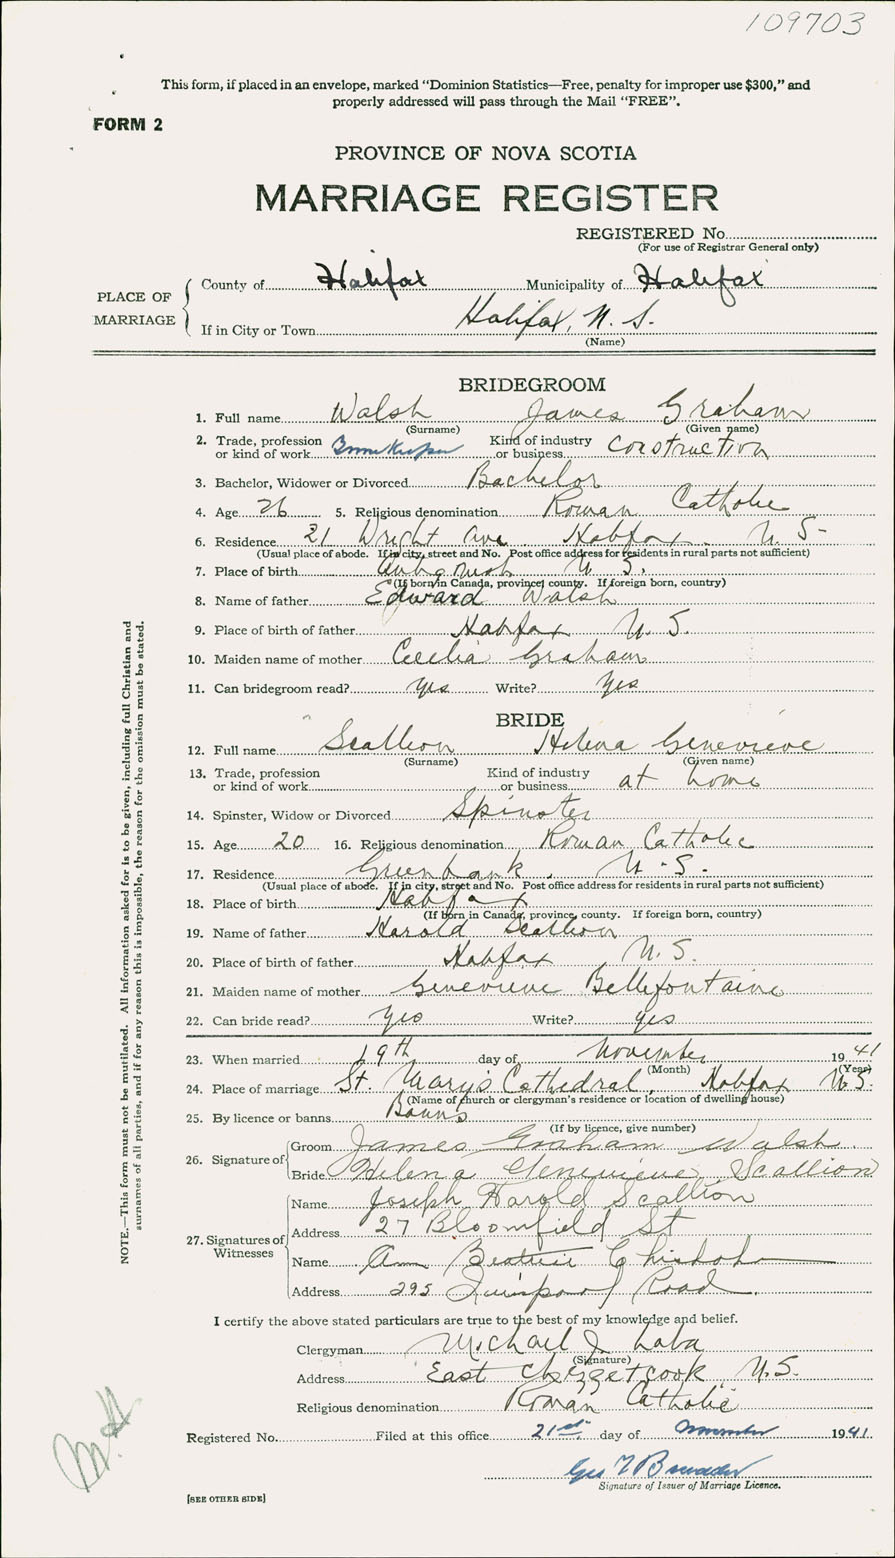 109703
This form, if placed in an envelope, marked "Dominion Statistics—Free, penalty for improper use $300," and
properly addressed will pass through the Mail "FREE".
FORM 2
PROVINCE OF NOVA SCOTIA
MARRIAGE REGISTER
REGISTERED No.
(For use of Registrar General only)
PLACE OF MARRIAGE
County of Halifax Municipality of Halifax
If in City or Town Halifax, N. S.
(Name)
BRIDEGROOM
1. Full name Walsh James Graham
(Surname) (Given name)
2. Trade, profession or kind of work Kind of industry or business construction
3. Bachelor, Widower or Divorced Bachelor
4. Age 26 5. Religious denomination Roman Catholic
6. Residence 21 Wright Ave Halifax N. S-
(Usual place of abode. If in city, street and No. Post office address for residents in rural parts not sufficient)
7. Place of birth Antigonish N. S.
(If born in Canada, province, county. If foreign born, country)
8. Name of father Edward Walsh
9. Place of birth of father Halifax N. S.
10. Maiden name of mother Cecelia Graham
11. Can bridegroom read? yes Write? yes
BRIDE
12. Full name Scallion Helena Genevieve
(Surname) (Given name)
13. Trade, profession or kind of work Kind of industry or business at home
14. Spinster, Widow or Divorced Spinster
15. Age 20 16. Religious denomination Roman Catholic
17. Residence Greenbank. N. S.
(Usual place of abode. If in city, street and No. Post office address for residents in rural parts not sufficient)
18. Place of birth Halifax
(If born in Canada, province, county. If foreign born, country)
19. Name of father Harold Scallion
20. Place of birth of father Halifax N. S.
21. Maiden name of mother Genevieve Bellefontaine
22. Can bride read? yes Write? yes
23. When married 19th day of November 1941
(Month) (Year)
24. Place of marriage St. Mary's Cathedral, Halifax N S.
(Name of church or clergyman's residence or location of dwelling house)
25. By licence or banns Banns
(If by licence, give number)
26. Signature of
Groom James Graham Walsh.
Bride Helena Genevieve Scallion
27. Signatures of Witnesses
Name Joseph Harold Scallion
Address 27 Bloomfield St
Name Ann Beatrice Chisholm
Address 295 Quinpool Road.
I certify the above stated particulars are true to the best of my knowledge and belief.
Clergyman Michael J Laba
(Signature)
Address East Chezzetcook N.S.
Religious denomination Roman Catholic
Registered No. Filed at this office 21st day of November 1941.
Geo
Signature of Issuer of Marriage Licence.
[SEE OTHER SIDE]
NOTE.—This form must not be mutilated. All information asked for is to be given, including full Christian and
surnames of all parties, and if for any reason this is impossible, the reason for the omission must be stated.